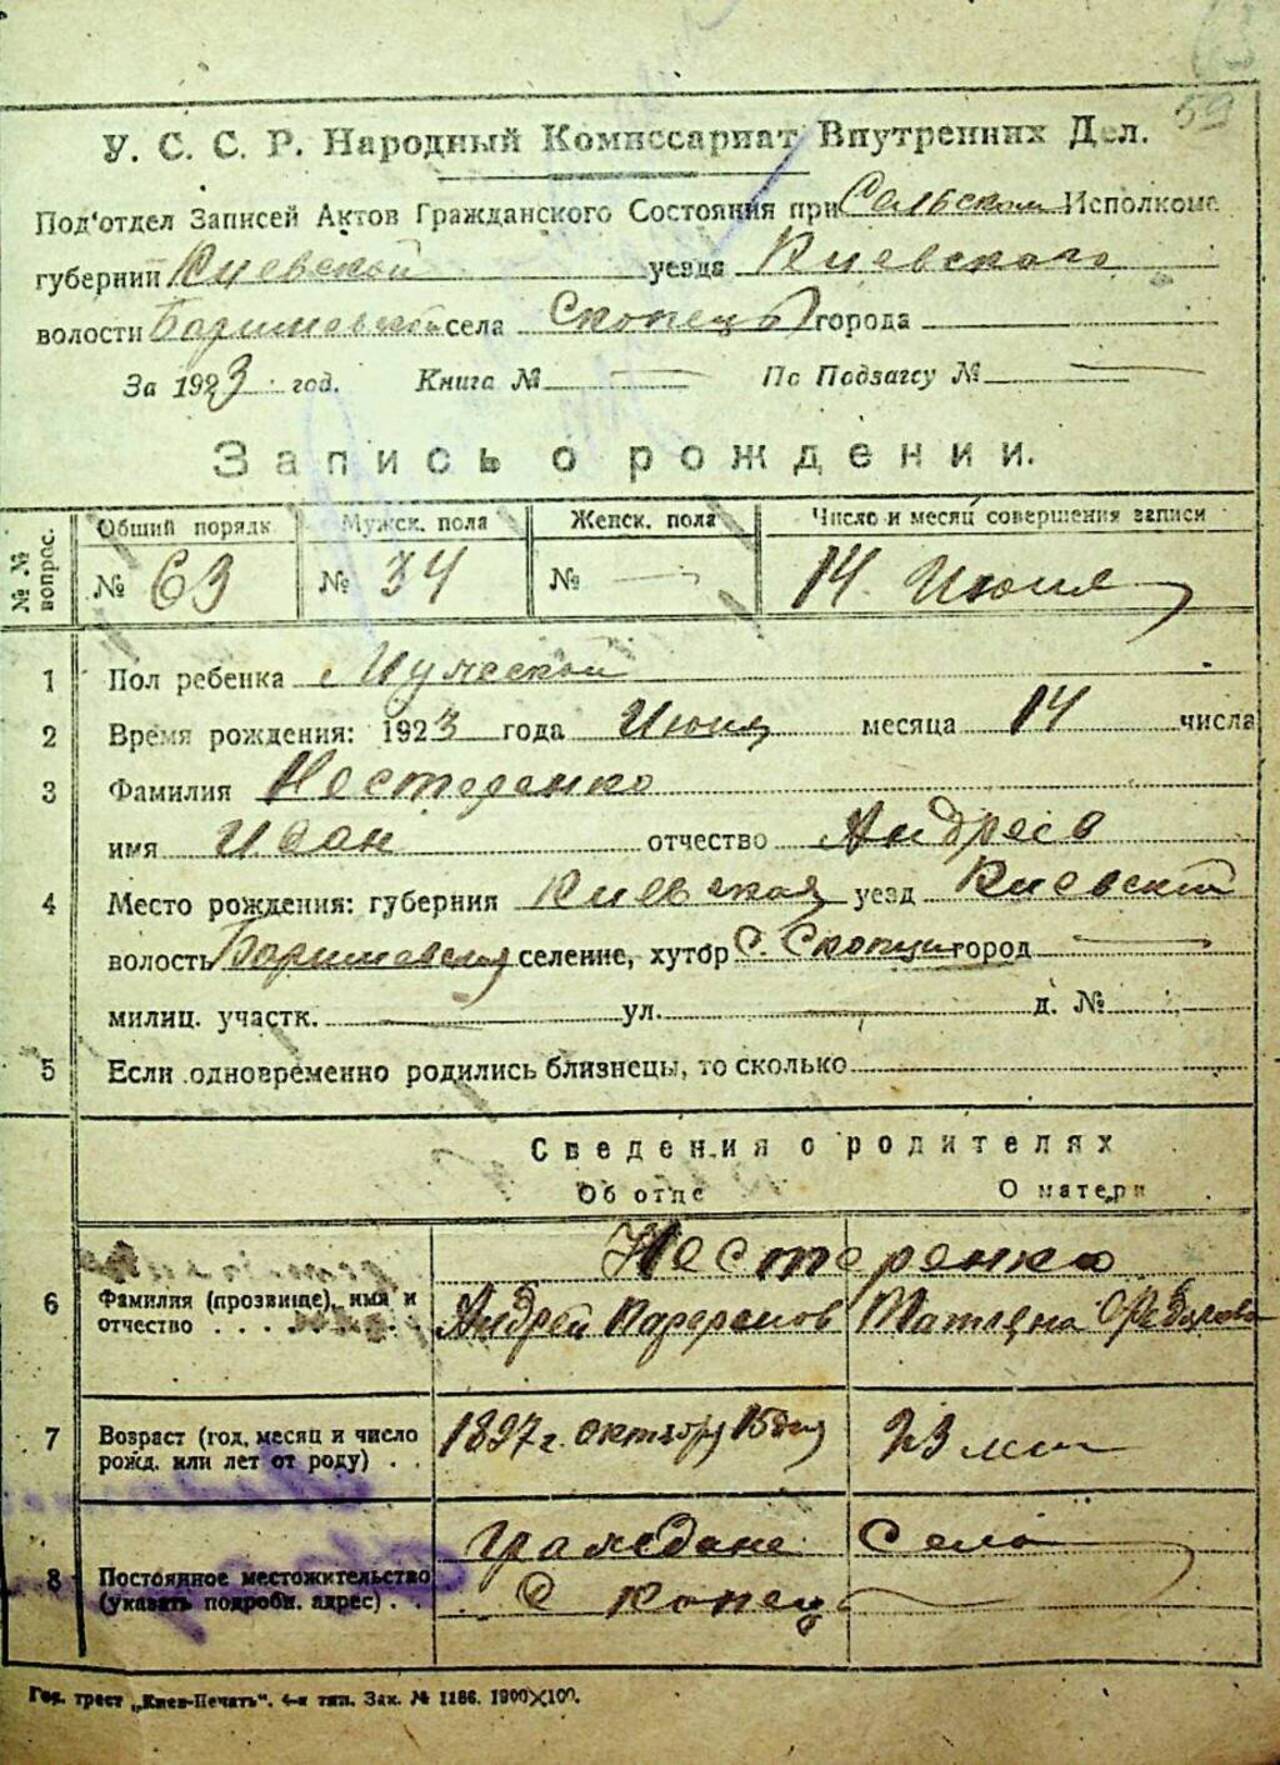 59
У. С. С. Р. Народный Комиссариат Внутренних Дел.
Под'отдел Записей Актов Гражданского Состояния при Сельском Исполкоме
губернии Киевской уезда Киевского
волости Баришевской села Скопец города
За 1923 год. Книга № По Подзагсу №
Запись о рождении.
№ № вопрос.
Общий порядк Мужск. пола Женск. пола Число и месяц совершения записи
№ 63 № 34 № — 14 Июня
1 Пол ребенка Мужской
2 Время рождения: 1923 года Июня месяца 14 числа
3 Фамилия Нестеренко
имя Иван отчество Андреев
4 Место рождения: губерния Киевская уезд Киевский
волость Баришевская селение, хутор С. Скопци город —
милиц. участк. — ул. — д. №
5 Если одновременно родились близнецы, то сколько
Сведения о родителях
Об отце О матери
Нестеренко
6 Фамилия (прозвище), имя и
отчество . . . Андрей Парфенов Татяна Федорова
7 Возраст (год, месяц и число
рожд. или лет от роду) . . 1897 г. октября 15 дня 23 лет
Граждане Села
8 Постоянное местожительство
(указать подробн. адрес) . . Скопец
Гос. трест „Киев-Печать“. 4-я тип. Зак. № 1186. 1900×100.